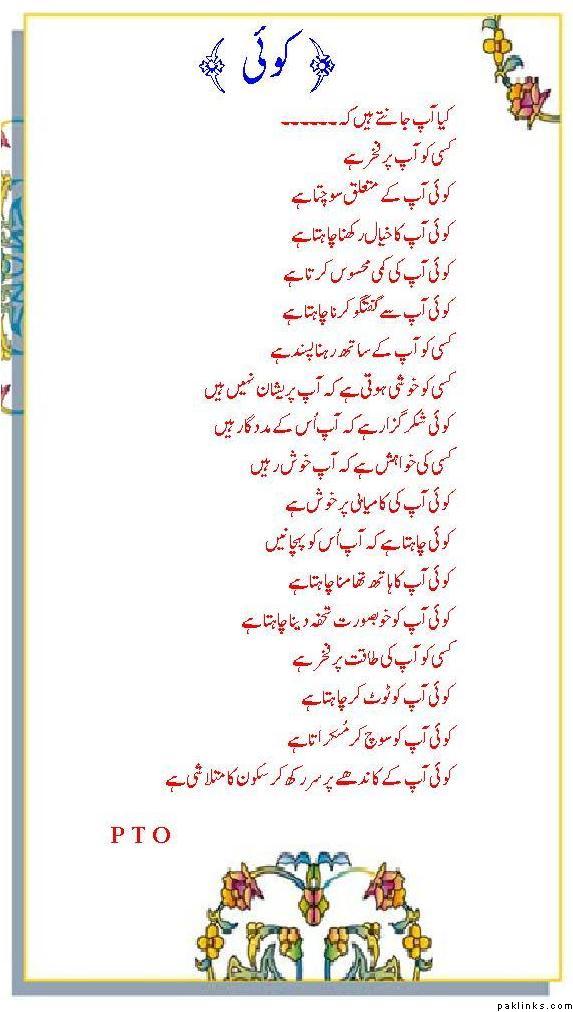 ﴿ کوئی ﴾
کیا آپ جانتے ہیں کہ ------
کسی کو آپ پر فخر ہے
کوئی آپ کے متعلق سوچتا ہے
کوئی آپ کا خیال رکھنا چاہتا ہے
کوئی آپ کی کمی محسوس کرتا ہے
کوئی آپ سے گفتگو کرنا چاہتا ہے
کسی کو آپ کے ساتھ رہنا پسند ہے
کسی کو خوشی ہوتی ہے کہ آپ پریشان نہیں ہیں
کوئی شکر گزار ہے کہ آپ اُس کے مددگار ہیں
کسی کی خواہش ہے کہ آپ خوش رہیں
کوئی آپ کی کامیابی پر خوش ہے
کوئی چاہتا ہے کہ آپ اُس کو پہچانیں
کوئی آپ کا ہاتھ تھامنا چاہتا ہے
کوئی آپ کو خوبصورت تحفہ دینا چاہتا ہے
کسی کو آپ کی طاقت پر فخر ہے
کوئی آپ کو ٹوٹ کر چاہتا ہے
کوئی آپ کو سوچ کر مُسکراتا ہے
کوئی آپ کے کاندھے پر سر رکھ کر سکون کا متلاشی ہے
P T O
paklinks.com